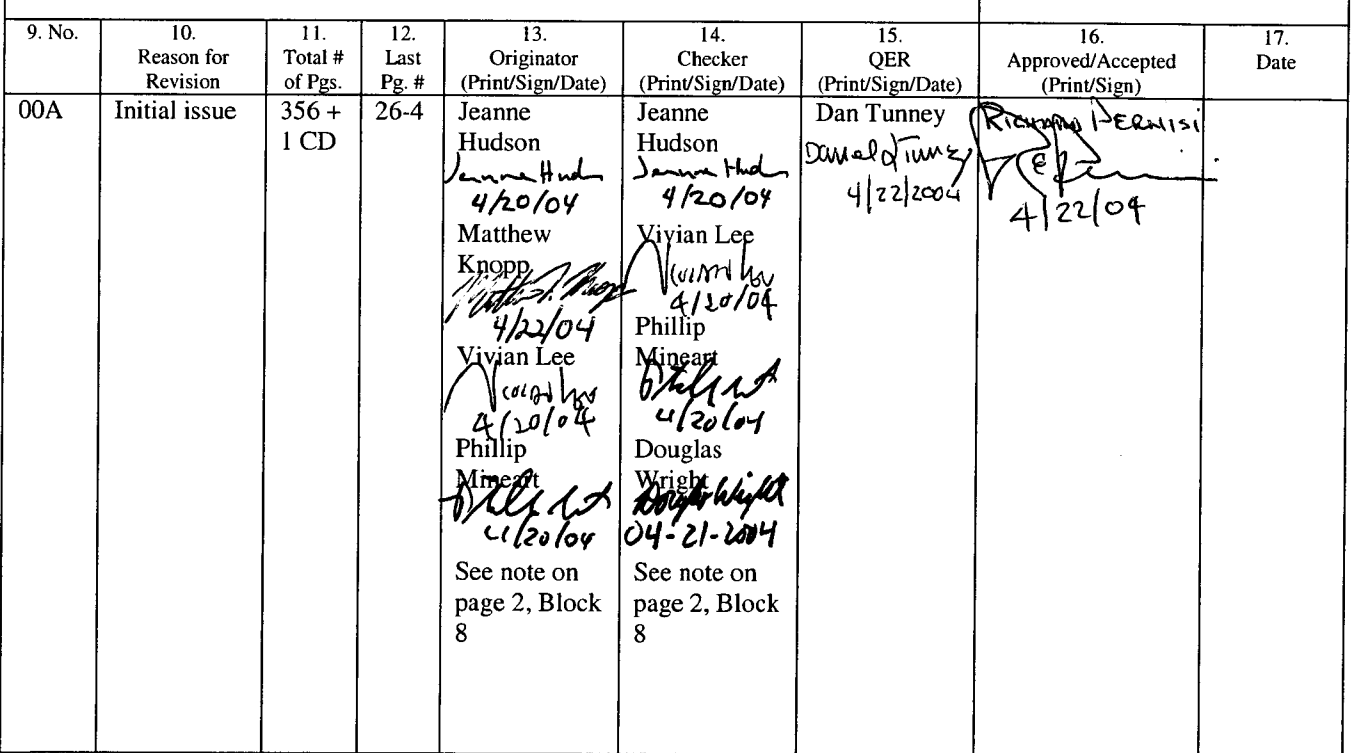 9. No.
10.
Reason for
Revision
11.
Total #
of Pgs.
12.
Last
Pg. #
13.
Originator
(Print/Sign/Date)
14.
Checker
(Print/Sign/Date)
15.
QER
(Print/Sign/Date)
16.
Approved/Accepted
(Print/Sign)
17.
Date
00A
Initial issue
356 +
1 CD
26-4
Jeanne
Hudson
4/20/04
Matthew
Knopp
4/22/04
Vivian Lee
4/20/04
Phillip
Mineart
4/20/04
See note on
page 2, Block
8
Jeanne
Hudson
4/20/04
Vivian Lee
4/20/04
Phillip
Mineart
4/20/04
Douglas
Wright
Douglas Wright
04-21-2004
See note on
page 2, Block
8
Dan Tunney
4/22/2004
RICHARD PERNISI
4/22/04